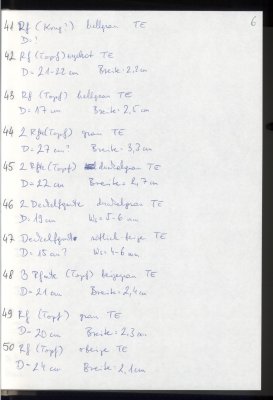 6
41 Rf (Krug?) hellgrau TE
D=?
42 Rf (Topf) TE
D=21-22 cm Breite: 2,2 cm
43 Rf (Topf) hellgrau TE
D=17 cm Breite: 2,5 cm
44 2 Rfte (Topf) grau TE
D=27 cm? Breite: 3,3 cm
45 2 Rfte (Topf) dunkelgrau TE
D=22 cm Breite: 2,7 cm
46 2 Deckelfgmte dunkelgrau TE
D=19 cm Ws=5-6 cm
47 Deckelfgmt rötlich beige TE
D=15 cm? Ws=4-6 cm
48 3 Rfmte (Topf) beigegrau TE
D=21 cm Breite: 2,4 cm
49 Rf (Topf) grau TE
D=20 cm Breite: 2,3 cm
50 Rf (Topf) TE
D=24 cm Breite: 2,1 cm